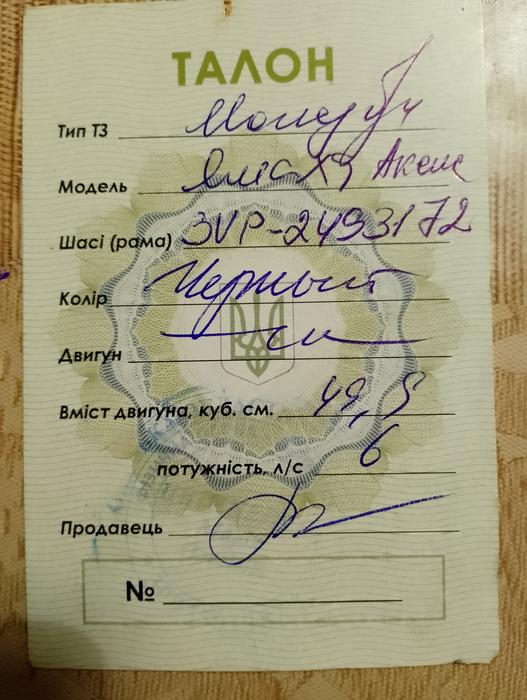 ТАЛОН
Тип ТЗ Мопед б/у
Модель Ямаха Аксис
Шасі (рама) 3VP-2493172
Колір Черный
Двигун
Вміст двигуна, куб. см. 49,5
потужність, л/с 6
Продавець
№